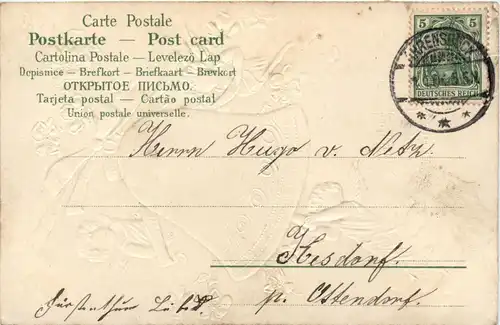 Carte Postale
Postkarte — Post card
Cartolina Postale — Levelező Lap
Dopisnice — Brefkort — Briefkaart — Brevkort
ОТКРЫТОЕ ПИСЬМО.
Tarjeta postal — Cartão postal
Union postale universelle.
5 5
DEUTSCHES REICH
AHRENSBÖK
Herrn Hugo v. Netz.
Kesdorf.
p. Ottendorf.
Fürstenthum Lübeck